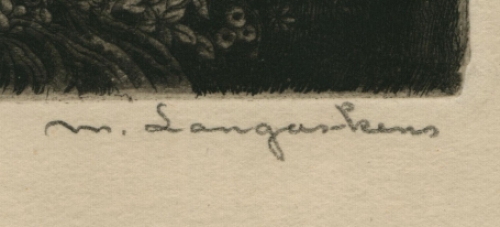 m. Langaskens